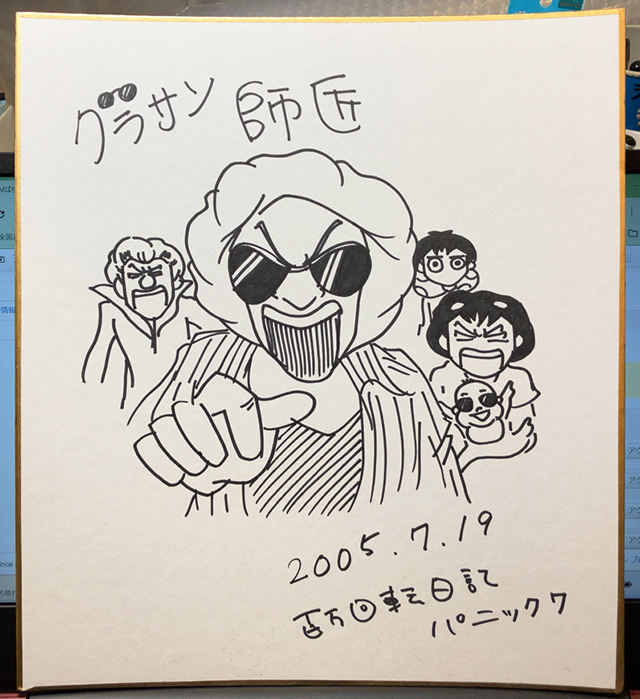 グラサン 師匠
2005.7.19
百万回転日記
パニック7